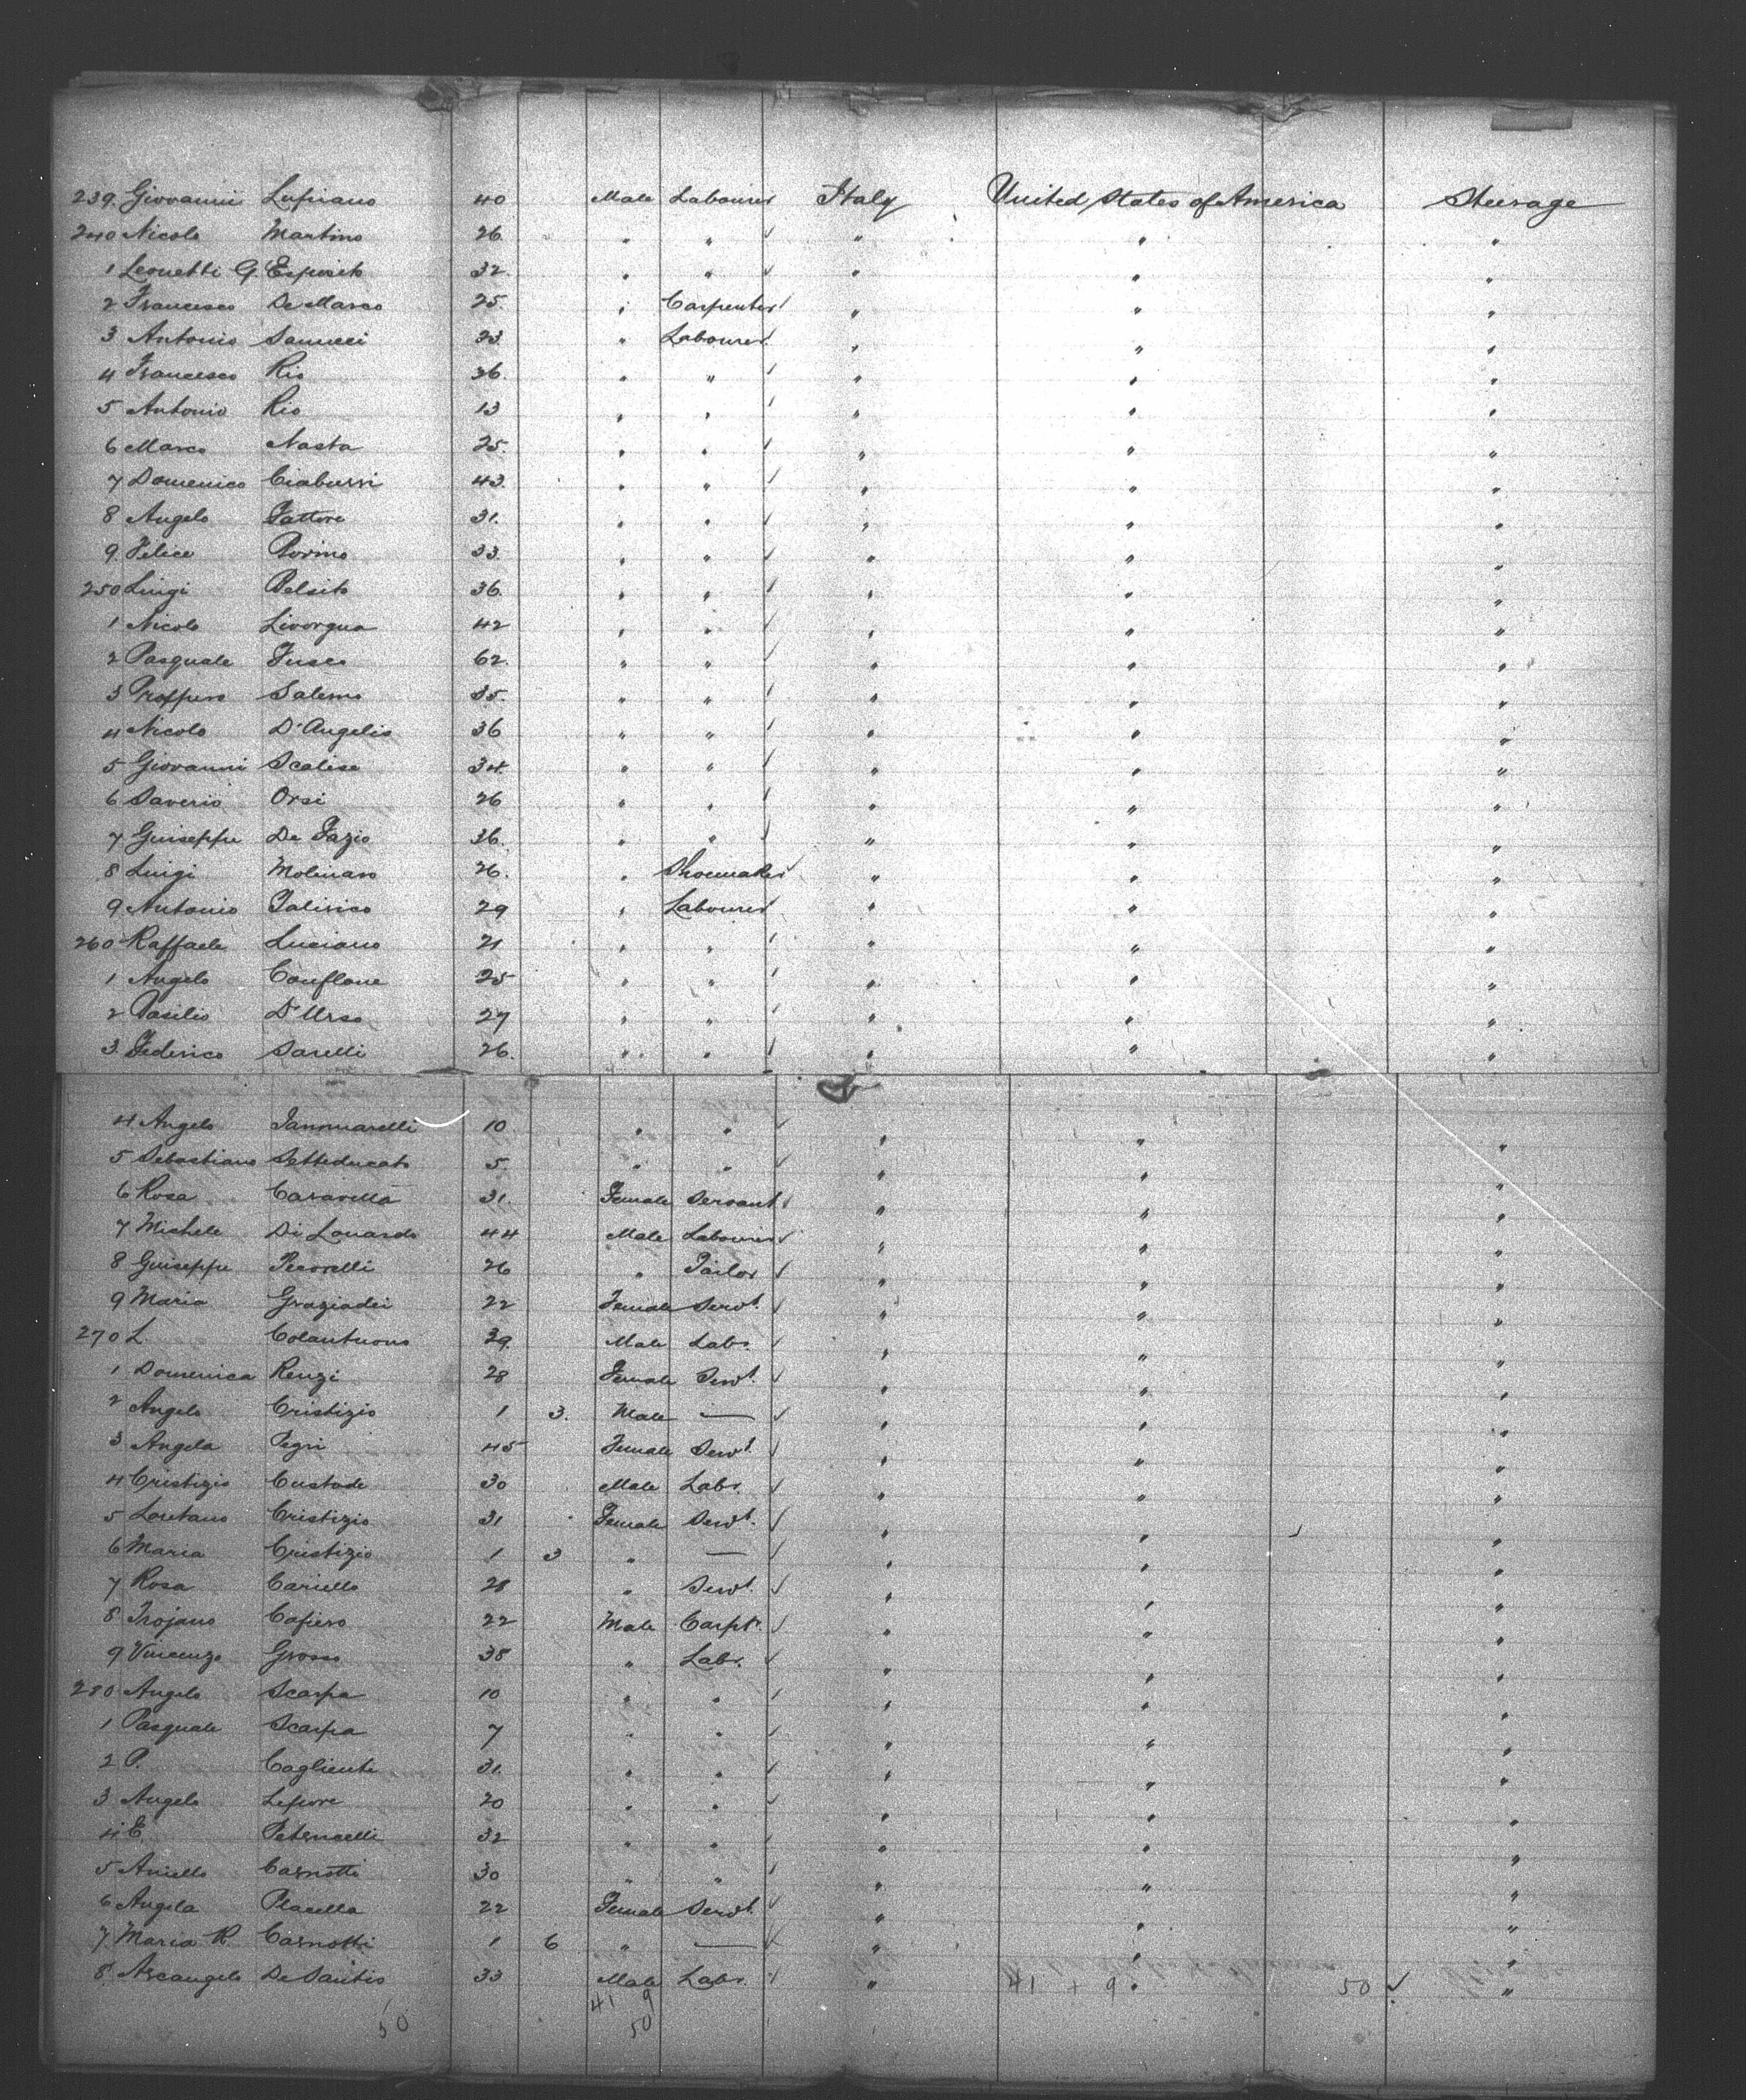 239. Giovanni Lupiano 40 Male Labourer Italy United States of America Steerage
240 Nicola Martino 26 " " " " "
1 Leonetti G. Esposito 32 " " " " "
2 Francesco De Marco 25 " Carpenter " " "
3 Antonio Sannici 23 " Labourer " " "
4 Francesco Rio 36 " " " " "
5 Antonio Rio 13 " " " " "
6 Marco Nasta 25 " " " " "
7 Domenico Ciaburri 43 " " " " "
8 Angelo Fattore 31 " " " " "
9 Felice Porino 33 " " " " "
250 Luigi Pelsito 36 " " " " "
1 Nicola Livorgna 42 " " " " "
2 Pasquale Fusco 62 " " " " "
3 Proffero Salerno 35 " " " " "
4 Nicola D'Angelis 36 " " " " "
5 Giovanni Scalise 34 " " " " "
6 Saverio Orsi 26 " " " " "
7 Guiseppe De Fazio 36 " " " " "
8 Luigi Molinaro 26 " Shoemaker " " "
9 Antonio Talirico 29 " Labourer " " "
260 Raffaele Luciano 21 " " " " "
1 Angelo Conflone 25 " " " " "
2 Basilio D'Urso 27 " " " " "
3 Federico Sarelli 26 " " " " "
4 Angelo Iammarelli 10 " " " " "
5 Sebastiano Setteducato 5 " " " " "
6 Rosa Caravella 31 Female Servant " " "
7 Michele Di Lonardo 44 Male Labourer " " "
8 Guiseppe Pecorelli 26 " Tailor " " "
9 Maria Graziadei 22 Female Servt. " " "
270 L. Colantuono 39 Male Labr. " " "
1 Domenica Renzi 28 Female Servt. " " "
2 Angelo Cristizio 1 3 Male — " " "
3 Angela Pegri 45 Female Servt. " " "
4 Cristizio Custode 30 Male Labr. " " "
5 Loretano Cristizio 31 Female Servt. " " "
6 Maria Cristizio 1 3 " — " " "
7 Rosa Cariello 28 " Servt. " " "
8 Trojano Cafiero 22 Male Carptr. " " "
9 Vincenzo Grosso 38 " Labr. " " "
280 Angelo Scarpa 10 " " " " "
1 Pasquale Scarpa 7 " " " " "
2 P. Cagliente 31 " " " " "
3 Angelo Lepore 20 " " " " "
4 E. Petrucelli 32 " " " " "
5 Aniello Carnotti 30 " " " " "
6 Angela Placella 22 Female Servt. " " "
7. Maria R. Carnotti 1 6 " — " " "
8 Arcangelo De Santis 33 Male Labr. " " "
41 + 9 50
41 9
50 50